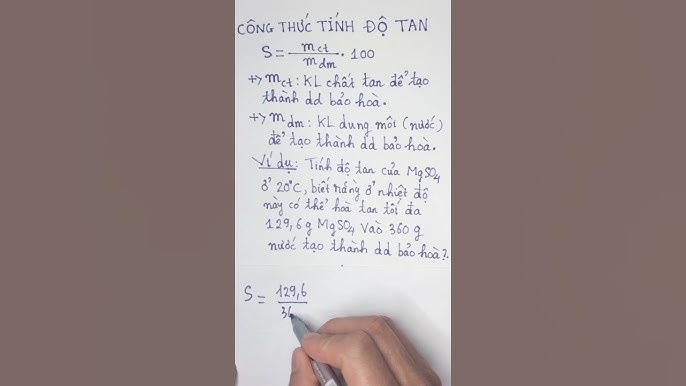 CÔNG THỨC TÍNH ĐỘ TAN
S = mct / mdm . 100
+> mct : KL chất tan để tạo
thành dd bão hoà.
+> mdm : KL dung môi (nước)
để tạo thành dd bão hoà.
Ví dụ: Tính độ tan của MgSO4
ở 20°C, biết rằng ở nhiệt độ
này có thể hoà tan tối đa
129,6 g MgSO4 vào 360 g
nước tạo thành dd bão hoà?.
S = 129,6 / 36